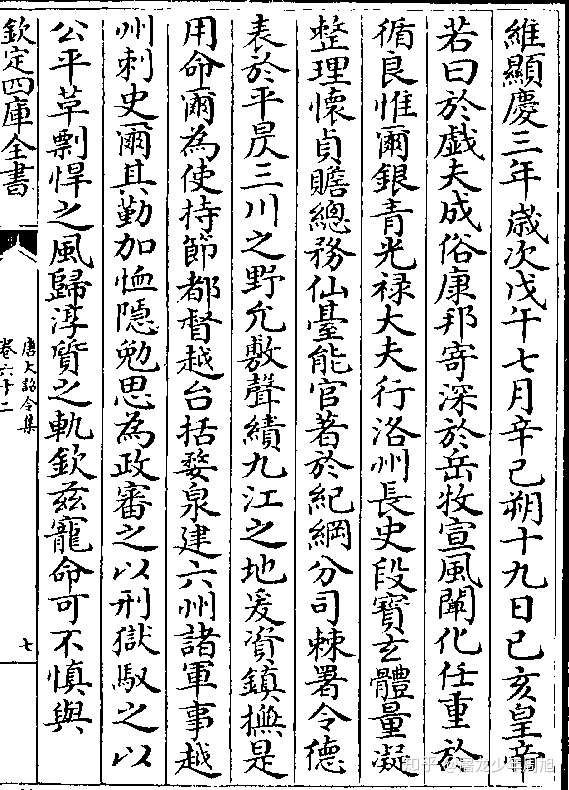 維顯慶三年歳次戊午七月辛已朔十九日己亥皇帝
若曰於戯夫成俗康邦寄深於岳牧宣風闡化任重於
循良惟爾銀青光禄大夫行洛州長史段寳玄體量凝
整理懐貞贍總務仙臺能官著於紀綱分司棘署令德
表於平昃三川之野允敷聲績九江之地爰資鎮撫是
用命爾為使持節都督越台括婺泉建六州諸軍事越
州刺史爾其勤加恤隠勉思為政審之以刑獄馭之以
公平草剽悍之風歸淳質之軌欽兹寵命可不慎與
欽定四庫全書
唐大詔令集
卷六十二
七
知乎